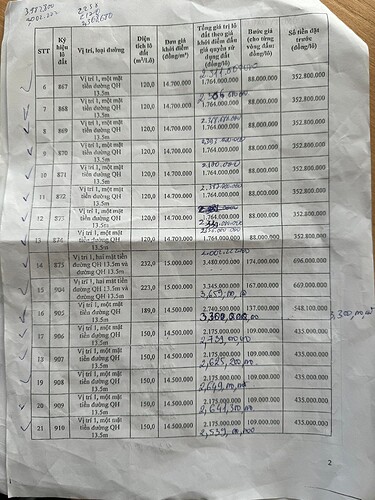 STT
Ký hiệu lô đất
Vị trí, loại đường
Diện tích lô đất (m²/Lô)
Đơn giá khởi điểm (đồng/m²)
Tổng giá trị lô đất theo giá khởi điểm đấu giá quyền sử dụng đất (đồng/lô)
Bước giá (cho từng vòng đấu: đồng/lô)
Số tiền đặt trước (đồng)
6 867 Vị trí 1, một mặt tiền đường QH 13.5m 120,0 14.700.000 1.764.000.000 88.000.000 352.800.000
7 868 Vị trí 1, một mặt tiền đường QH 13.5m 120,0 14.700.000 1.764.000.000 88.000.000 352.800.000
8 869 Vị trí 1, một mặt tiền đường QH 13.5m 120,0 14.700.000 1.764.000.000 88.000.000 352.800.000
9 870 Vị trí 1, một mặt tiền đường QH 13.5m 120,0 14.700.000 1.764.000.000 88.000.000 352.800.000
10 871 Vị trí 1, một mặt tiền đường QH 13.5m 120,0 14.700.000 1.764.000.000 88.000.000 352.800.000
11 872 Vị trí 1, một mặt tiền đường QH 13.5m 120,0 14.700.000 1.764.000.000 88.000.000 352.800.000
12 873 Vị trí 1, một mặt tiền đường QH 13.5m 120,0 14.700.000 1.764.000.000 88.000.000 352.800.000
13 874 Vị trí 1, một mặt tiền đường QH 13.5m 120,0 14.700.000 1.764.000.000 88.000.000 352.800.000
14 875 Vị trí 1, hai mặt tiền đường QH 13.5m và đường QH 13.5m 232,0 15.000.000 3.480.000.000 174.000.000 696.000.000
15 904 Vị trí 1, hai mặt tiền đường QH 13.5m và đường QH 13.5m 223,0 15.000.000 3.345.000.000 167.000.000 669.000.000
16 905 Vị trí 1, một mặt tiền đường QH 13.5m 189,0 14.500.000 2.740.500.000 137.000.000 548.100.000
17 906 Vị trí 1, một mặt tiền đường QH 13.5m 150,0 14.500.000 2.175.000.000 109.000.000 435.000.000
18 907 Vị trí 1, một mặt tiền đường QH 13.5m 150,0 14.500.000 2.175.000.000 109.000.000 435.000.000
19 908 Vị trí 1, một mặt tiền đường QH 13.5m 150,0 14.500.000 2.175.000.000 109.000.000 435.000.000
20 909 Vị trí 1, một mặt tiền đường QH 13.5m 150,0 14.500.000 2.175.000.000 109.000.000 435.000.000
21 910 Vị trí 1, một mặt tiền đường QH 13.5m 150,0 14.500.000 2.175.000.000 109.000.000 435.000.000
2